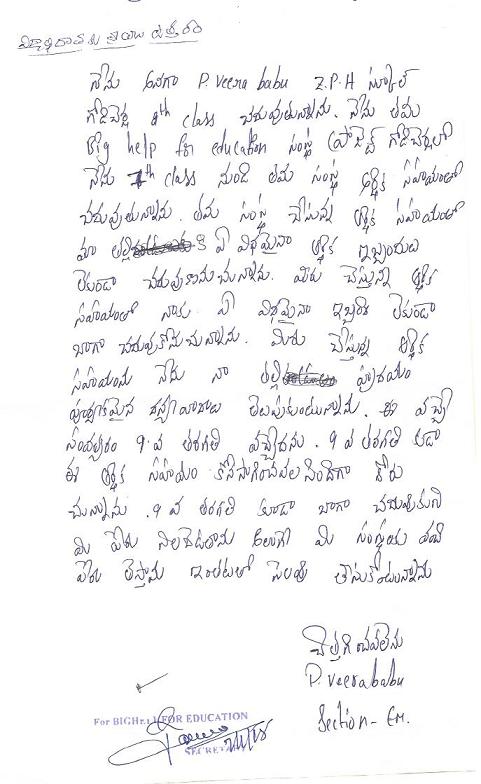 విద్యార్థి రావుకు వ్రాయు ఉత్తరం
నేను అనగా P. veera babu Z.P.H స్కూల్
గోడిచెర్ల 8th class చదువుతున్నాను. నేను తమ
Big help for education సంస్థ ప్రాజెక్ట్ గోడిచెర్లలో
నేను 7th class నుండి తమ సంస్థ ఆర్థిక సహాయంతో
చదువుతున్నాను. తమ సంస్థ చేస్తున్న ఆర్థిక సహాయంతో
మా తల్లి కి ఏ విధమైనా ఆర్థిక ఇబ్బందుదు
లేకుండా చదువుకొనుచున్నాను. మీరు చేస్తున్న ఆర్థిక
సహాయంతో నాకు ఏ విధమైనా ఇబ్బంది లేకుండా
బాగా చదువుకొనుచున్నాను. మీరు చేస్తున్న ఆర్థిక
సహాయము నేను నా తల్లి హృదయం
పూర్వకమైన ధన్యవాదాలు తెలుపుకుంటున్నాను. ఈ వచ్చే
సంవత్సరం 9వ తరగతి వచ్చేదను. 9వ తరగతి కూడా
ఈ ఆర్థిక సహాయం కొనసాగించవలసిందిగా కోరు
చున్నాను. 9వ తరగతి కూడా బాగా చదువుకుని
మీ పేరు నిలబెడతాను అలాగే మీ సంస్థయ
పేరు తెస్తాను ఇంతటితో సెలవు తీసుకొంటున్నాను
చిత్తగించవలెను
P. veerababu
Section - Em.
For BIGH FOR EDUCATION
SECRETA